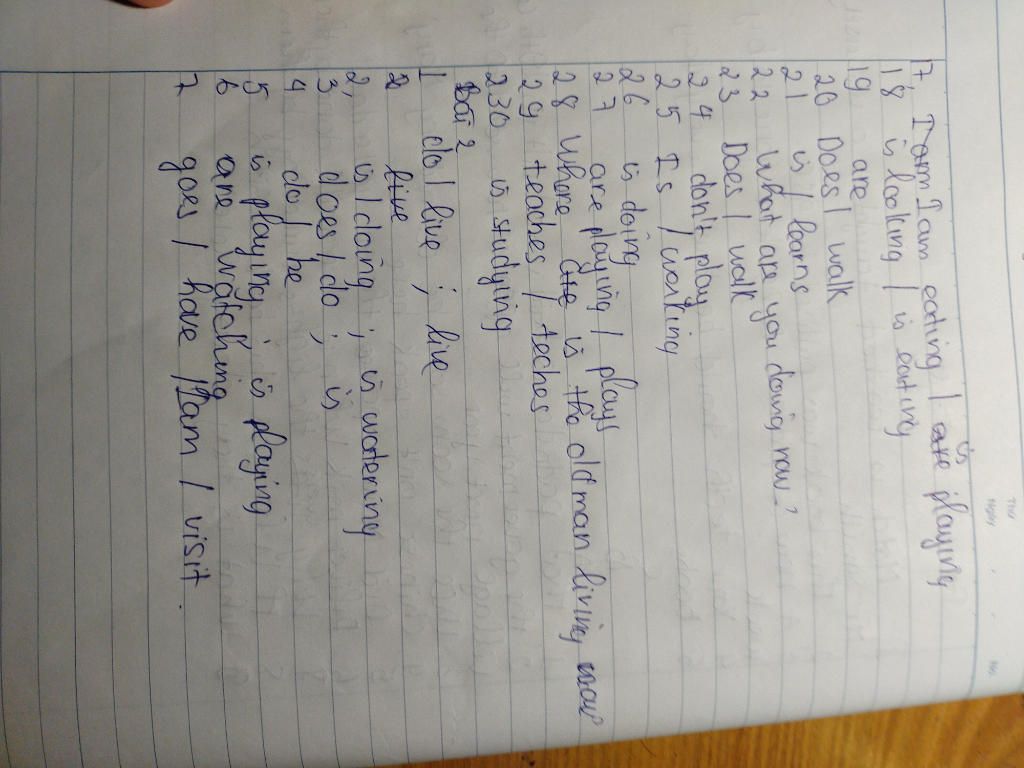 17 I am eating / is playing
18 is looking / is eating
19 are
20 Does / walk
21 is / learns
22 What are you doing now?
23 Does / walk
24 don't play
25 Is / working
26 is doing
27 are playing / plays
28 Where is the old man living now?
29 teaches / teches
30 is studying
Bài 2
1 do / live ; live
2, is / doing ; is watering
3, does / do ; is
4 do / be
5 is playing ; is playing
6 are watching
7 goes / have / am / visit.